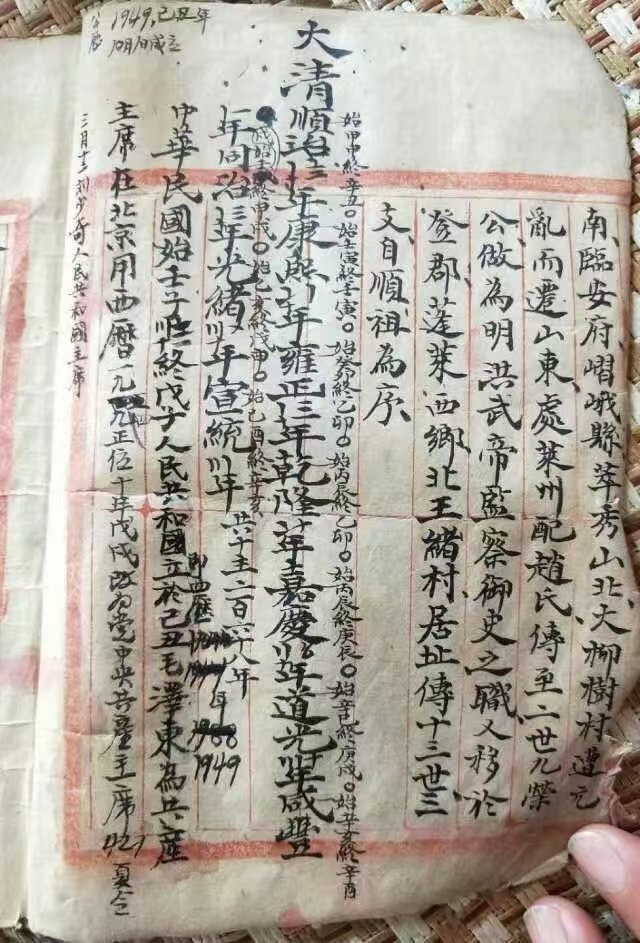 南臨安府嶍峨縣萃秀山北大柳樹村遭元
亂而遷山東處萊州配趙氏傳至二世九榮
公做為明洪武帝監察御史之職又移於
登郡蓬萊西鄉北王緒村居址傳十三世三
支自順祖為序
始甲申終辛丑○始壬寅終壬寅○始癸卯終乙卯○始丙辰終乙卯○始丙辰終庚辰○始辛巳終庚戌○始辛亥終辛酉
大清順治年康熙年雍正三年乾隆年嘉慶年道光年咸豐
始己酉終辛亥
年同治三年光緒年宣統年
共十主二百六十八年
中華民國始壬子終戊子人民共和國立於己丑毛澤東為共產
即西歷
1949
主席在北京用西曆一九正位十年戊戌改為党中央共產主席
三月十二刘少奇人民共和國主席
公曆1949.己丑年
10月1日成立